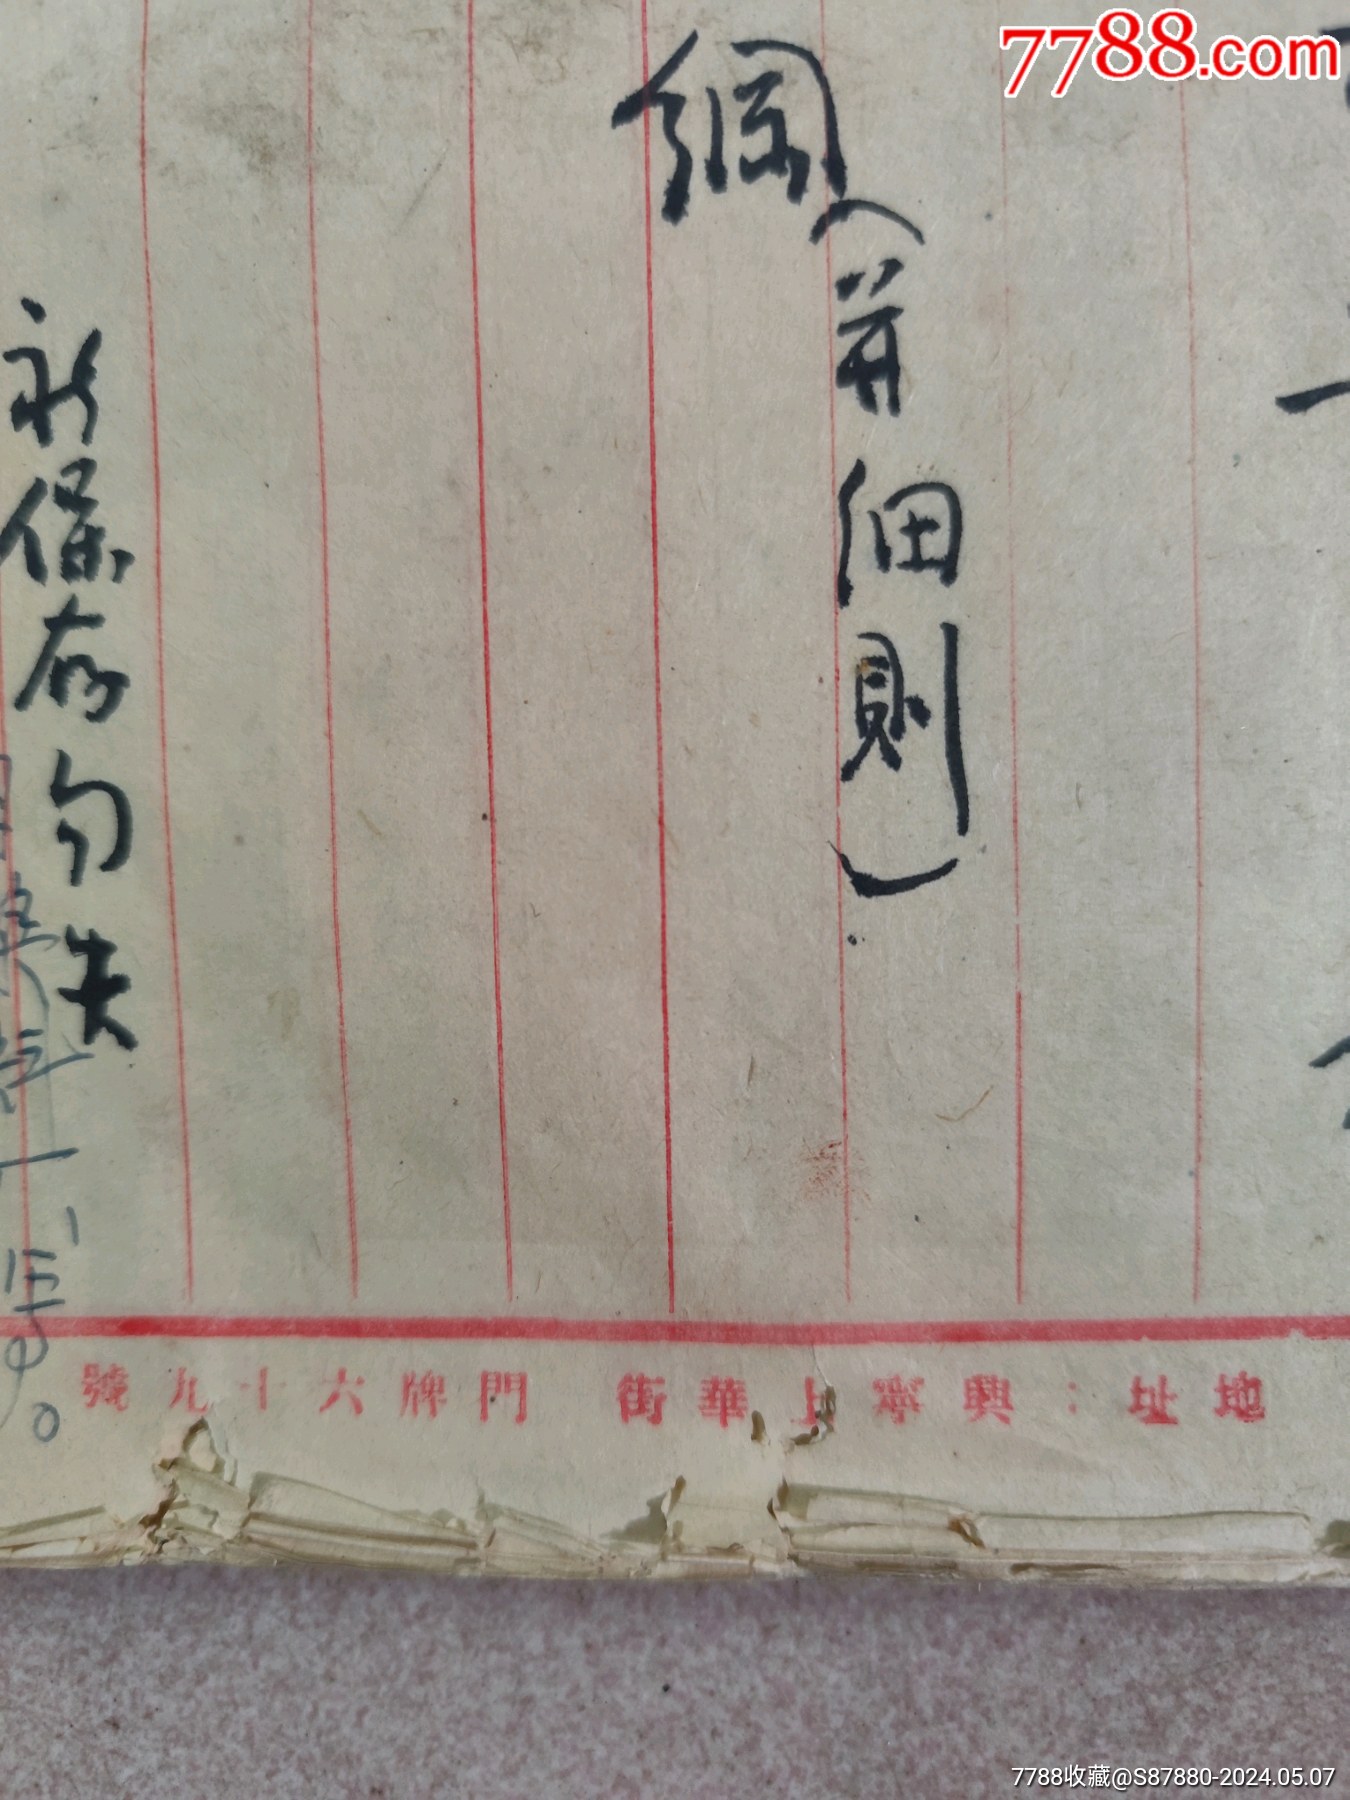 7788.com
綱（并細則）
永保存勿失
地址：興寧上華街 門牌六十九號
7788收藏@S87880-2024.05.07